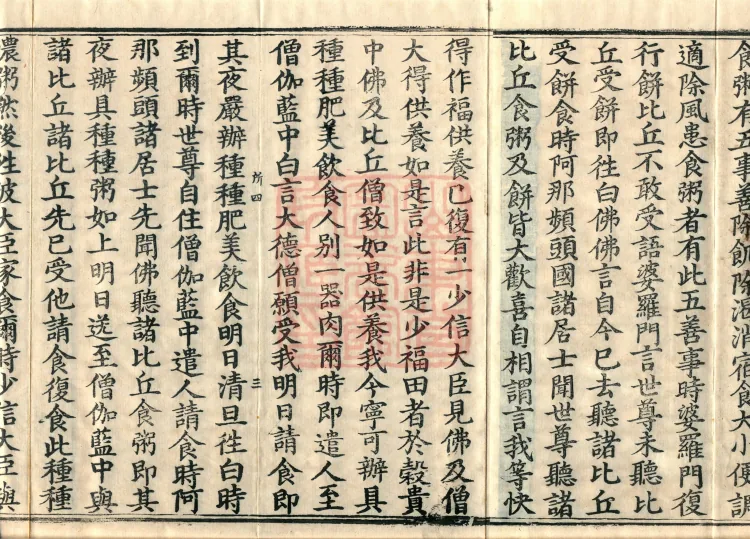 食粥有五事善除飢除渴消宿食大小便調
適除風患食粥者有此五善事時婆羅門復
行餅比丘不敢受語婆羅門言世尊未聽比
丘受餅即徃白佛佛言自今巳去聽諸比丘
受餅食時阿那頻頭國諸居士聞世尊聽諸
比丘食粥及餅皆大歡喜自相謂言我等快
得作福供養巳復有一少信大臣見佛及僧
大得供養如是言此非是少福田者於穀貴
中佛及比丘僧致如是供養我今寧可辦具
種種肥美飲食人別一器肉爾時即遣人至
僧伽藍中白言大德僧願受我明日請食即
所四
三
其夜嚴辦種種肥美飲食明日清旦徃白時
到爾時世尊自住僧伽藍中遣人請食時阿
那頻頭諸居士先聞佛聽諸比丘食粥即其
夜辦具種種粥如上明日送至僧伽藍中與
諸比丘諸比丘先巳受他請食復食此種種
濃粥然後徃彼大臣家食爾時少信大臣與